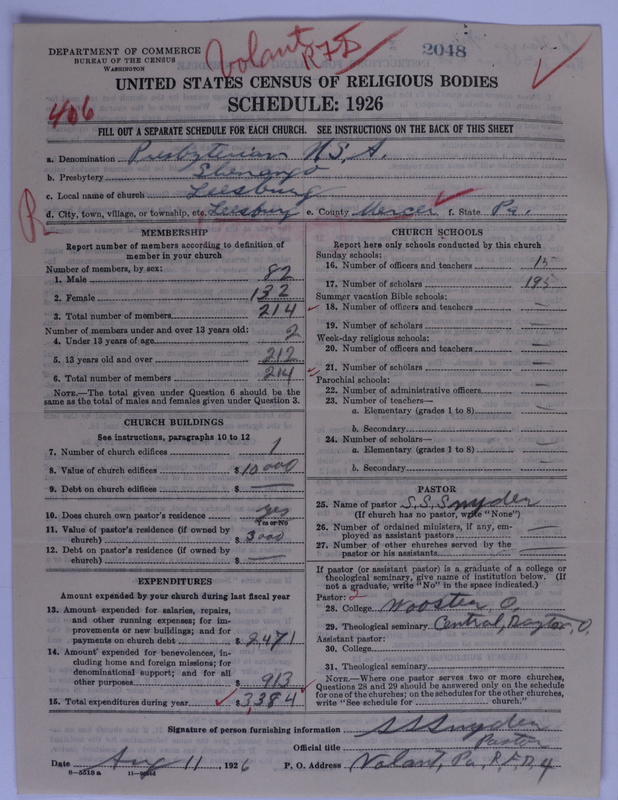 DEPARTMENT OF COMMERCE
BUREAU OF THE CENSUS
WASHINGTON
Volant
RFD
2048
UNITED STATES CENSUS OF RELIGIOUS BODIES
SCHEDULE: 1926
406
FILL OUT A SEPARATE SCHEDULE FOR EACH CHURCH. SEE INSTRUCTIONS ON THE BACK OF THIS SHEET
a. Denomination Presbyterian U.S.A.
b. Presbytery Shenango
c. Local name of church Leesburg
d. City, town, village, or township, etc. Leesburg e. County Mercer f. State Pa.
R
MEMBERSHIP
Report number of members according to definition of
member in your church
Number of members, by sex:
1. Male 82
2. Female 132
3. Total number of members 214
Number of members under and over 13 years old:
4. Under 13 years of age 2
5. 13 years old and over 212
6. Total number of members 214
NOTE.—The total given under Question 6 should be
same as the total of males and females given under Question 3.
CHURCH BUILDINGS
See instructions, paragraphs 10 to 12
7. Number of church edifices 1
8. Value of church edifices $10000
9. Debt on church edifices $ —
10. Does church own pastor's residence yes
Yes or No
11. Value of pastor's residence (if owned by
church) $3000
12. Debt on pastor's residence (if owned by
church) $ —
EXPENDITURES
Amount expended by your church during last fiscal year
13. Amount expended for salaries, repairs,
and other running expenses; for im-
provements or new buildings; and for
payments on church debt $2471
14. Amount expended for benevolences, in-
cluding home and foreign missions; for
denominational support; and for all
other purposes $913
15. Total expenditures during year $3,384
CHURCH SCHOOLS
Report here only schools conducted by this church
Sunday schools:
16. Number of officers and teachers 15
17. Number of scholars 195
Summer vacation Bible schools:
18. Number of officers and teachers —
19. Number of scholars —
Week-day religious schools:
20. Number of officers and teachers —
21. Number of scholars —
Parochial schools:
22. Number of administrative officers —
23. Number of teachers—
a. Elementary (grades 1 to 8) —
b. Secondary —
24. Number of scholars—
a. Elementary (grades 1 to 8) —
b. Secondary —
PASTOR
25. Name of pastor S. S. Snyder
(If church has no pastor, write "None")
26. Number of ordained ministers, if any, em-
ployed as assistant pastors —
27. Number of other churches served by the
pastor or his assistants —
If pastor (or assistant pastor) is a graduate of a college or
theological seminary, give name of institution below. (If
not a graduate, write "No" in the space indicated.)
Pastor: 2
28. College Wooster O.
29. Theological seminary Central, Dayton, O
Assistant pastor:
30. College
31. Theological seminary
NOTE.—Where one pastor serves two or more churches,
Questions 28 and 29 should be answered only on the schedule
for one of the churches; on the schedules for the other churches,
write "See schedule for ........ church."
Signature of person furnishing information S S Snyder
Official title Pastor
Date Aug 11, 1926 P. O. Address Volant, Pa, R.F.D. 4
8—5518 a